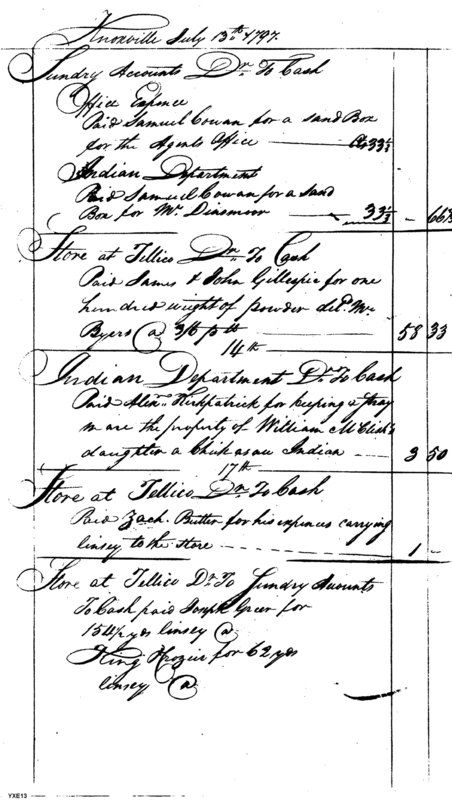 Knoxville July 13th 1797.
Sundry Accounts Dr. To Cash
Office Expence
Paid Samuel Cowan for a sand Box
for the Agents Office — Cts 33 1/3
Indian Department
Paid Samuel Cowan for a Sand
Box for Mr. Dinsmoor — 33 1/3 – 66 2/3
Store at Tellico Dr. To Cash
Paid James & John Gillespie for one
hundred weight of powder deld. Mr.
Byers @ 3/6 p lb — 58 33
14th
Indian Department Dr. To Cash
Paid Alexr. Kirkpatrick for keeping a stray
mare the property of William
daughter a Chickasaw Indian — 3 50
17th
Store at Tellico Dr. To Cash
Paid Zach. Butler for his expences carrying
linsey to the store — 1 –
Store at Tellico Dr. To Sundry Accounts
To Cash paid Joseph Greer for
154 1/2 yds linsey @
King & Crozier for 62 yds
linsey @
YXE13